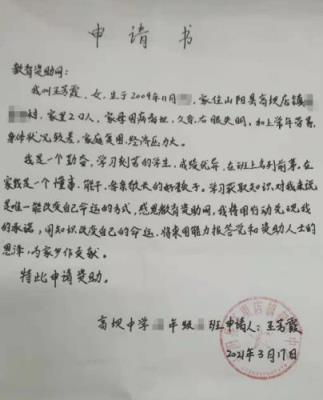 申请书
教育资助网：
我叫王芳霞，女，生于2009年11月 ，家住山阳县高坝店镇
村，家里2口人，家母因病 ，久 右眼失明，和上 年
身体状况较差，家庭贫困，经济压力大。
我是一个勤奋，学习刻苦的学生，成绩优异，在班上名列前茅。在
家我是一个懂事、能干、 的好孩子。学习获取知识，对我来说
是唯一能改变自己命运的方式，感恩教育资助网，我将用行动兑现我
的承诺，用知识改变自己的命运，将来用能力报答党和资助人士的
恩泽，为家乡作贡献。
特此申请资助。
高坝中学 年级 班 申请人：王芳霞
2021年3月17日